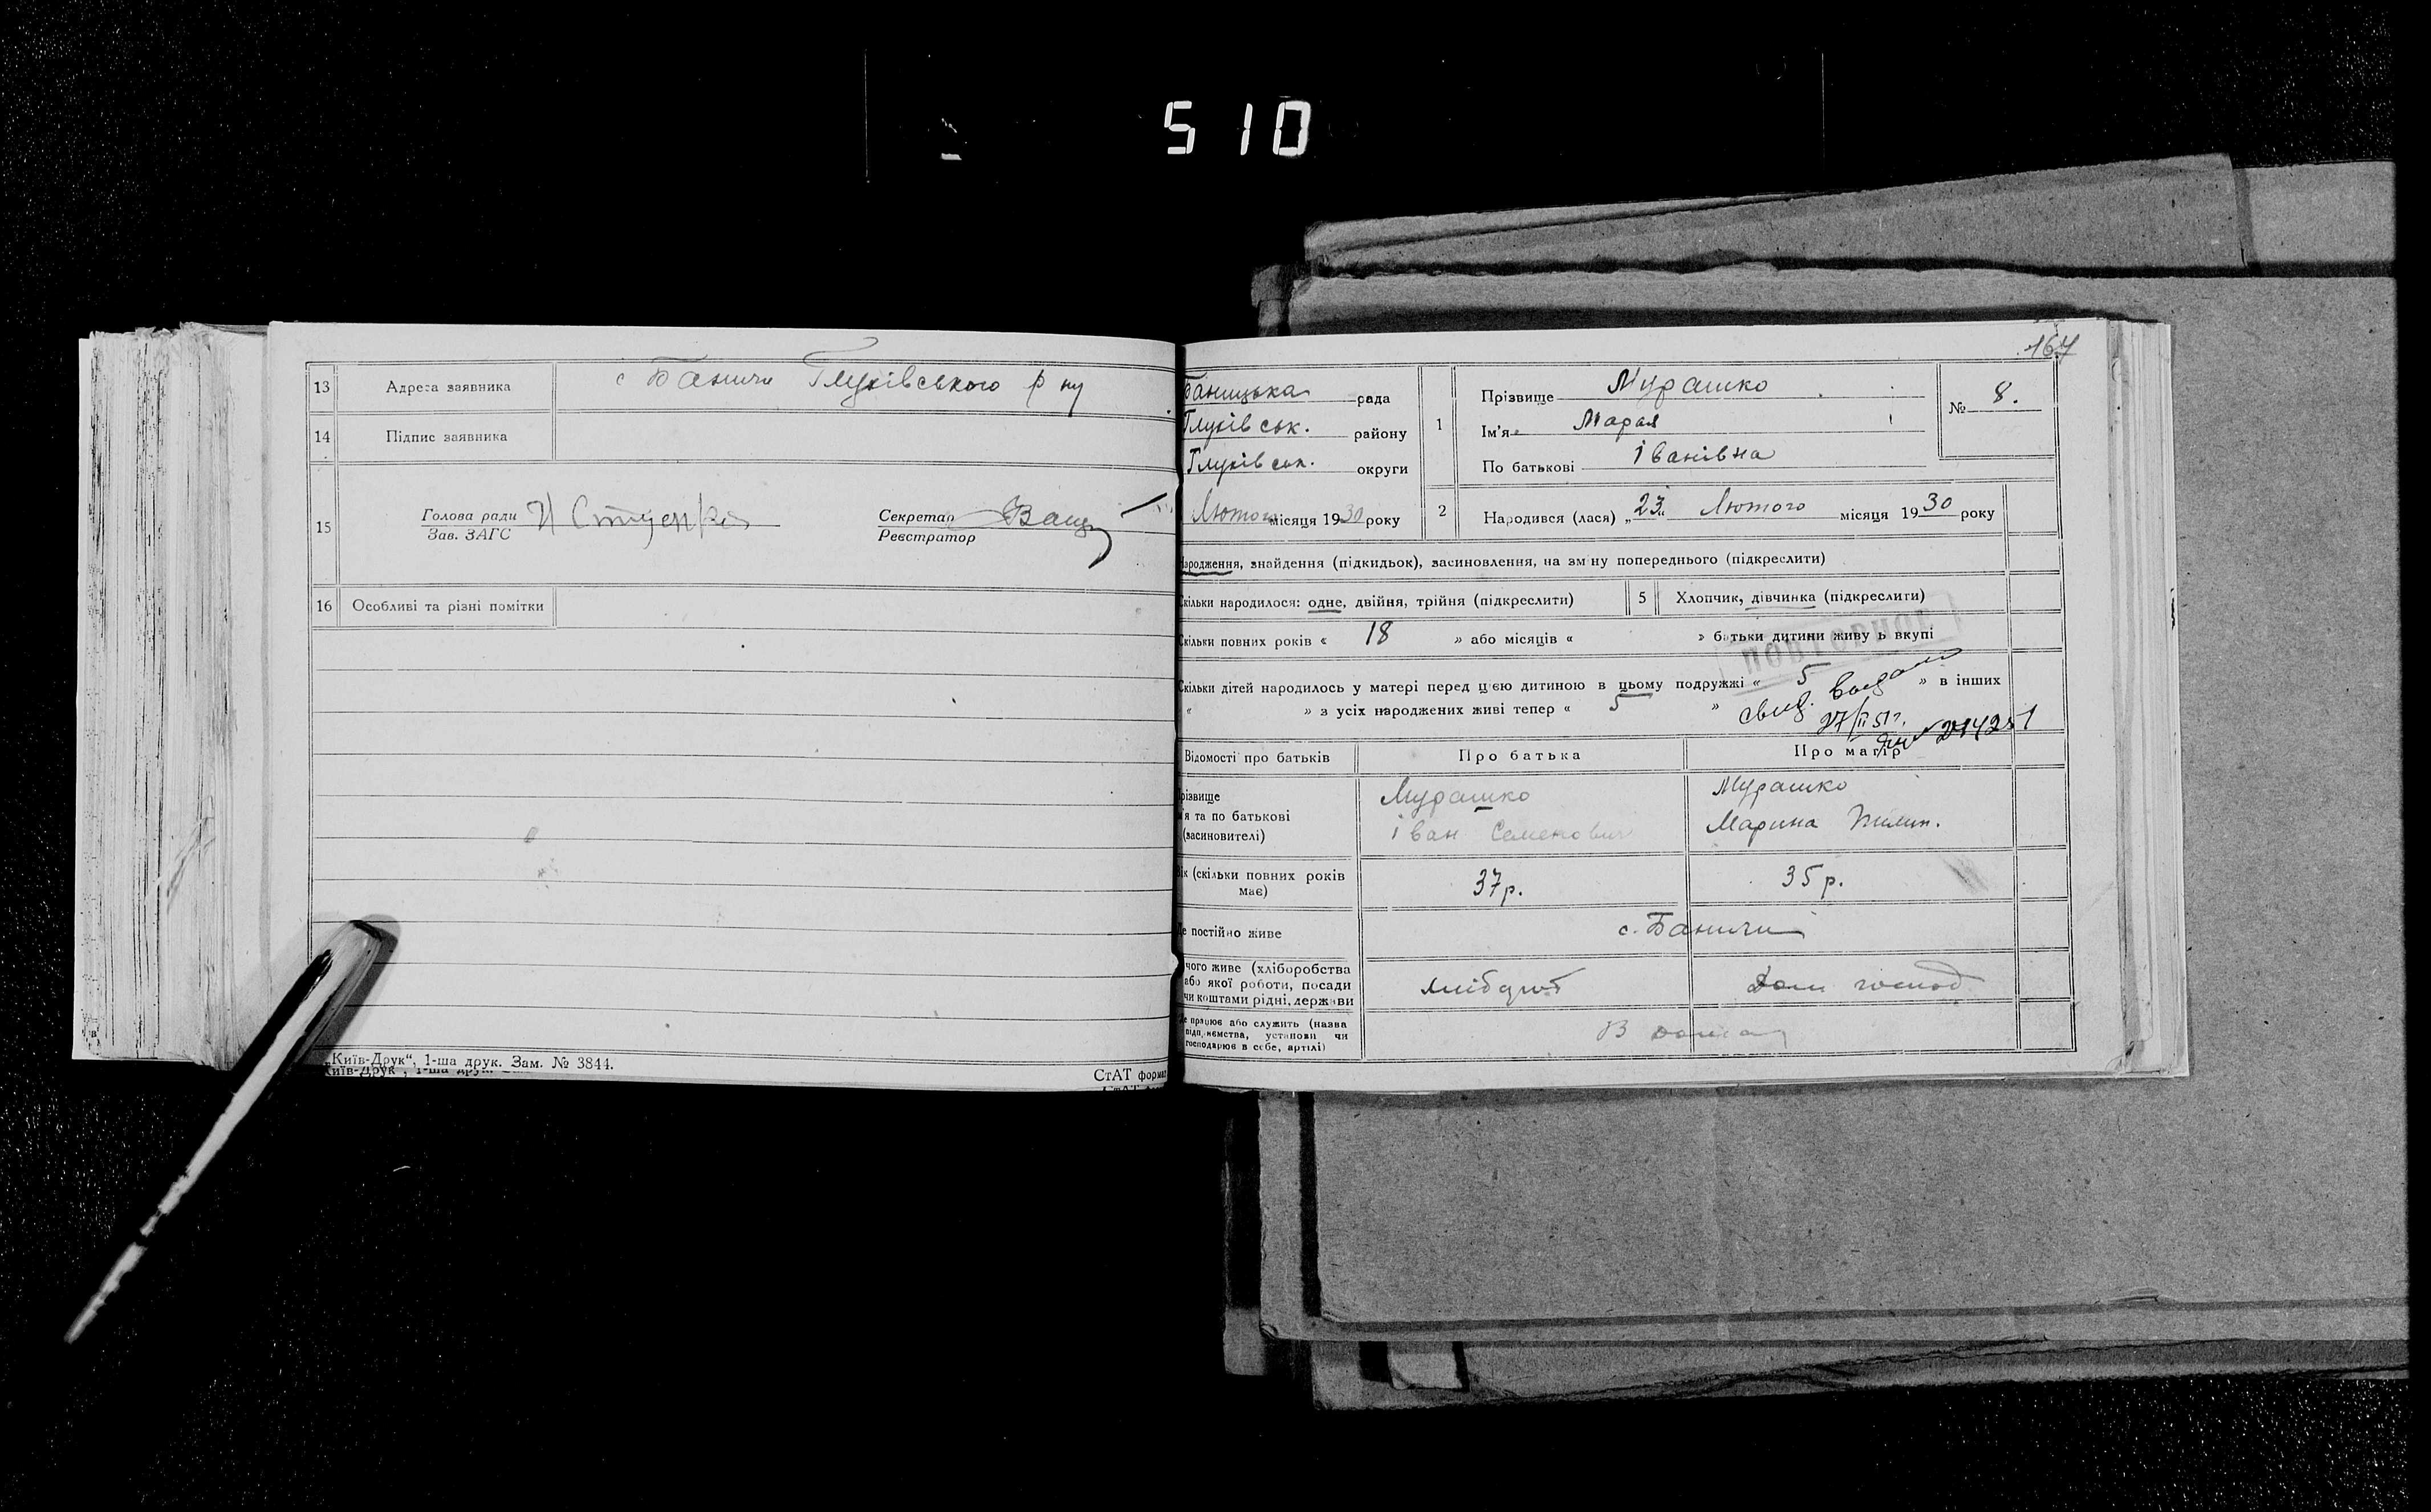 510
13 Адреса заявника с Баничи Глухівського р ну
14 Підпис заявника
15 Голова ради
Зав. ЗАГС
Секретар
Реєстратор
16 Особливі та різні помітки
„Київ-Друк“, 1-ша друк. Зам. № 3844.
СтАТ форма
167
Баницька рада
Глухівськ. району
Глухівськ. округи
Лютого місяця 1930 року
1 Прізвище Мурашко
Ім'я Марія
По батькові Іванівна
№ 8.
2 Народився (лася) „23“ Лютого місяця 1930 року
Народження, знайдення (підкидьок), засиновлення, на зміну попереднього (підкреслити)
Скільки народилося: одне, двійня, трійня (підкреслити)
5 Хлопчик, дівчинка (підкреслити)
Скільки повних років « 18 » або місяців « » батьки дитини живуть вкупі
ПОВТОРНОЕ
Скільки дітей народилось у матері перед цією дитиною в цьому подружжі « 5 » в інших
« » з усіх народжених живі тепер « 5 »
свид. выдано
27/II 51г.
Відомості про батьків
Про батька
Про матір
Прізвище
ім'я та по батькові
(засиновителі)
Мурашко
Іван Семенович
Мурашко
Марина Пилип.
Вік (скільки повних років має) 37р. 35р.
Де постійно живе с. Баничи
чого живе (хліборобства
або якої роботи, посади
чи коштами рідні, держави
хлібороб
Дом господ
Де працює або служить (назва
підприємства, установи чи
господарює в себе, артілі)
В дома